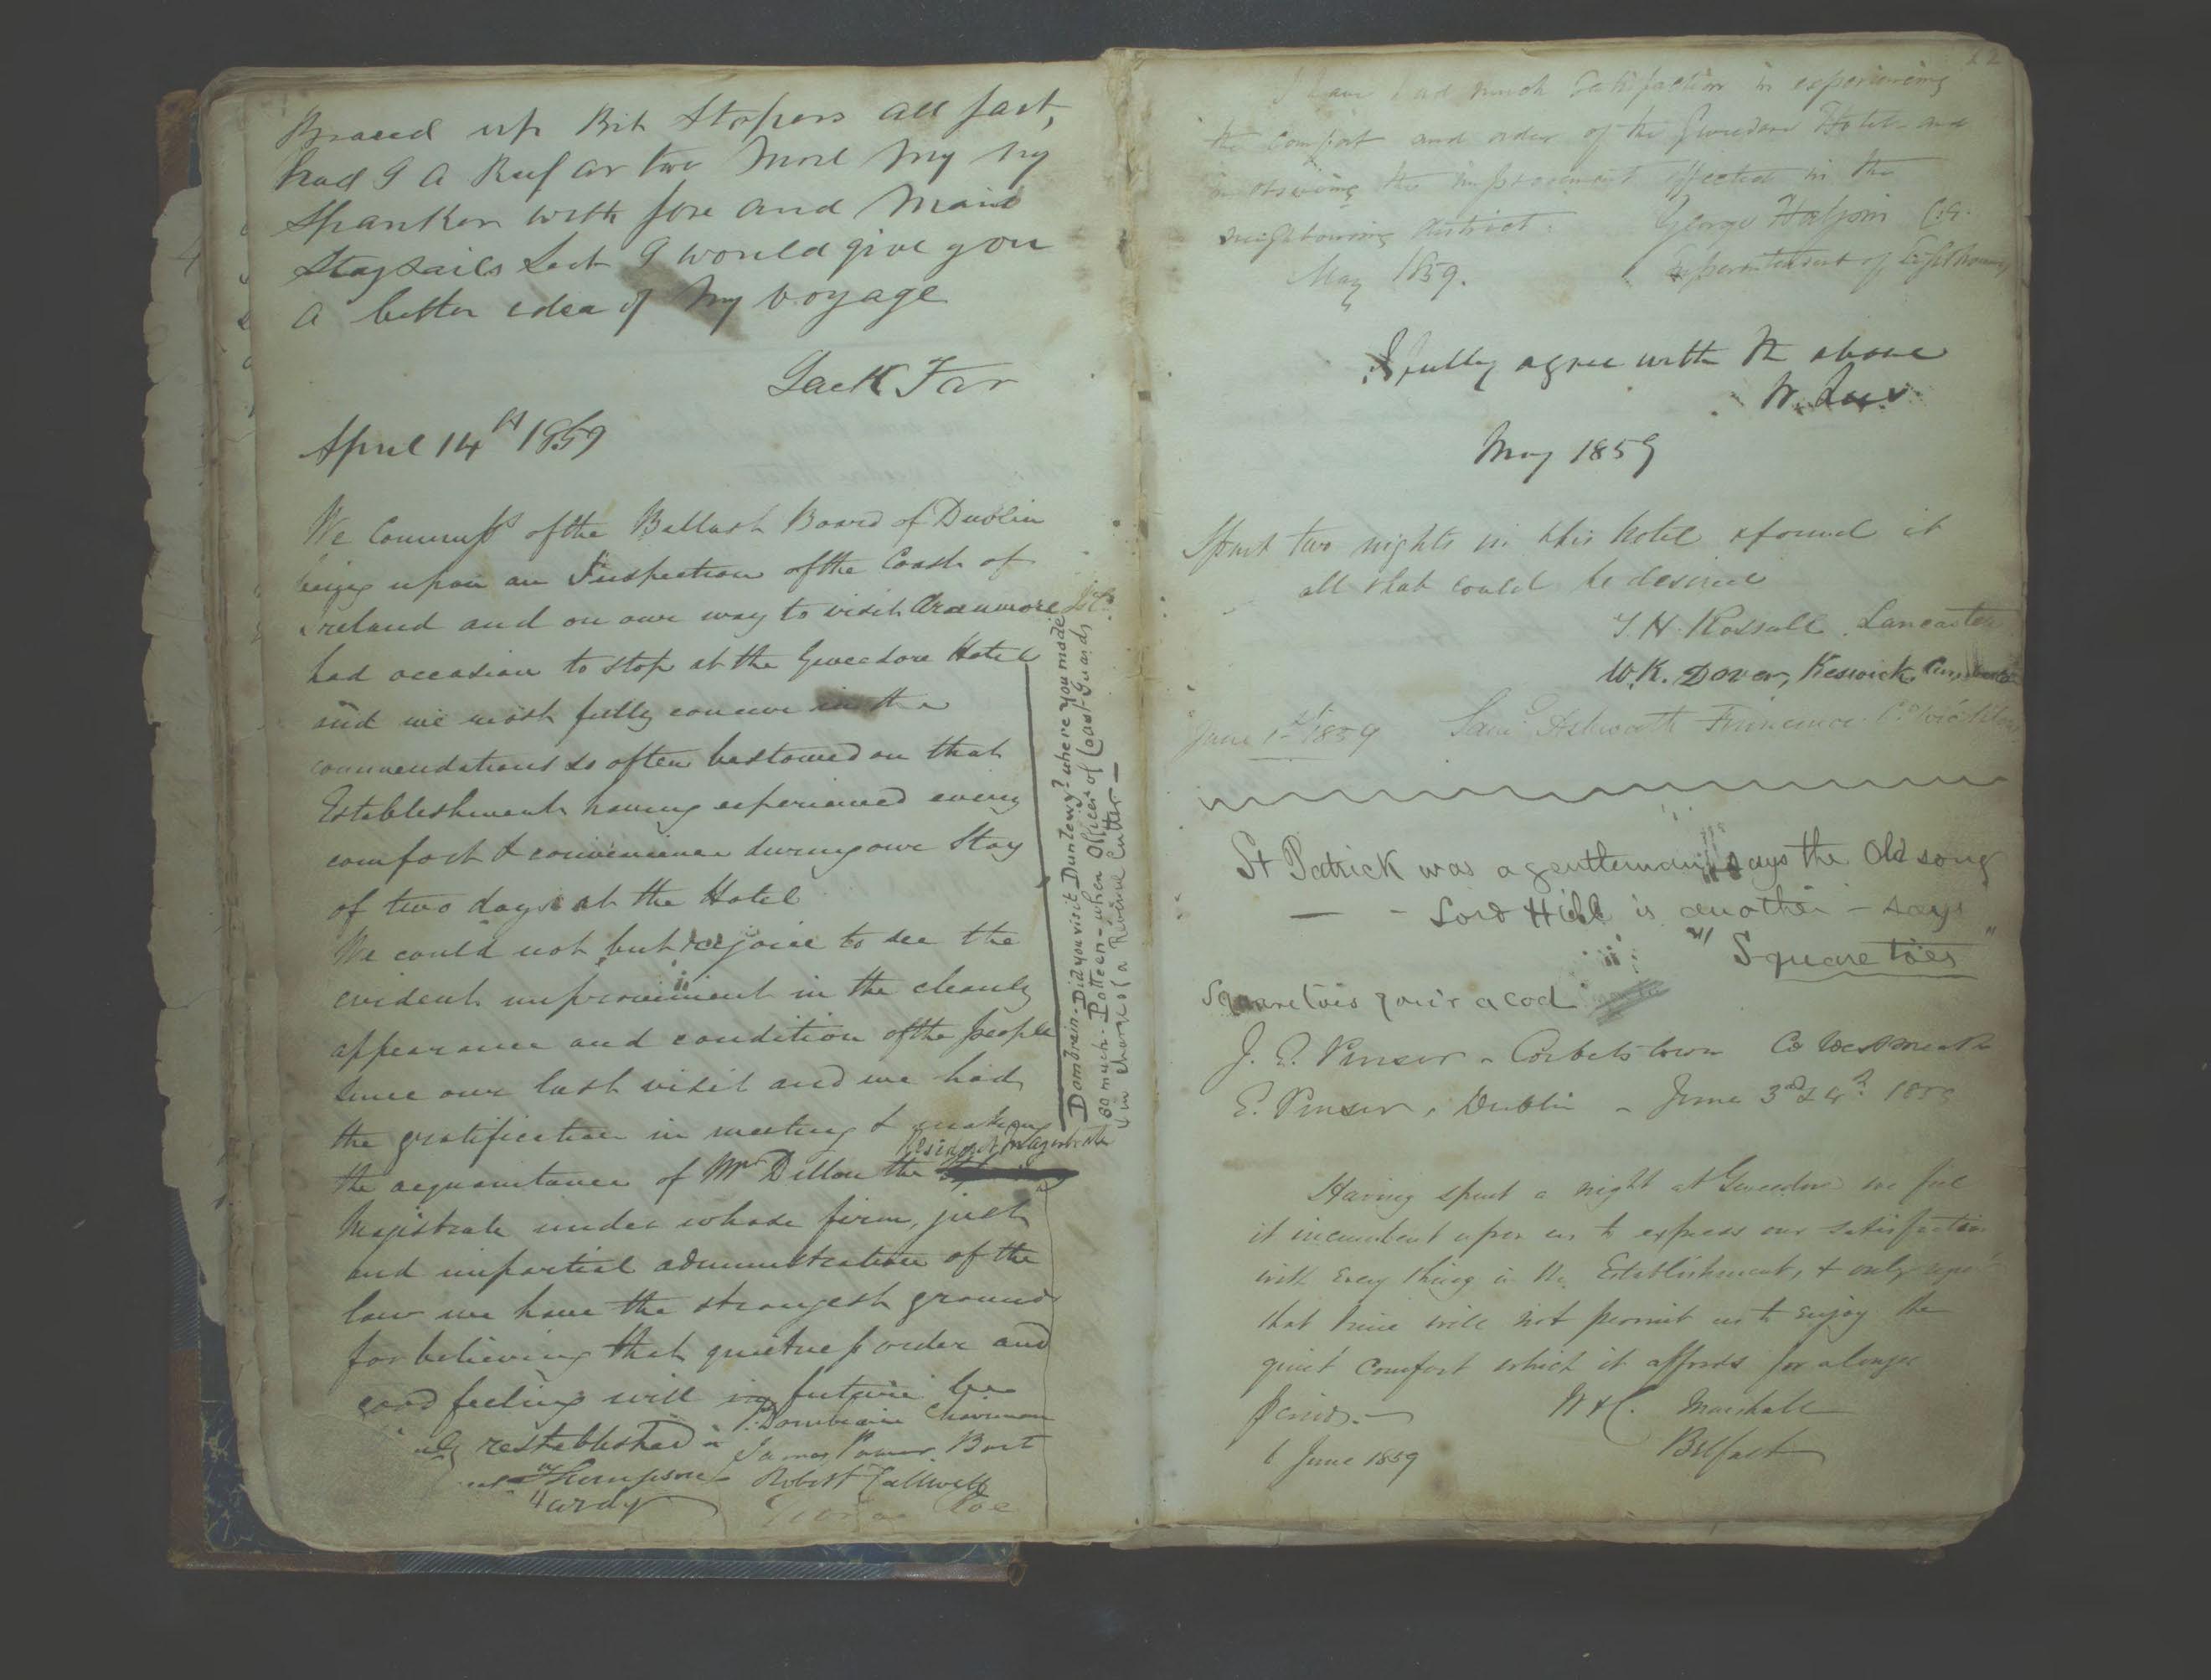 Braced up Bit Stopers all fast,
had I a Reef or two More My
Spanker with fore and Main
Staysails Set I would give you
a better idea of My voyage
Jack Tar
April 14th 1859
We Commrs of the Ballast Board of Dublin
being upon an Inspection of the Coast of
Ireland and on our way to visit Arranmore
had occasion to stop at the Gweedore Hotel
and we most fully concur in the
commendations so often bestowed on that
Establishment having experienced every
comfort & convenience during our Stay
of two days at the Hotel
We could not but rejoice to see the
evident improvement in the cleanly
appearance and condition of the people
since our last visit and we had
the gratification in meeting & making
Resident Magistrate
the acquaintance of Mr Dillon the
Magistrate under whose firm, just
and impartial administration of the
law we have the strongest ground
for believing that quietness order and
good feeling will in future be
restablished
P. Dombrain Chairman
James Power Bart
Thompson Robert Callwell
Hardy George Roe
Dombrain - Did you visit Dunlewy? where you made
so much Potteen - when Officer of Coast Guards
& in charge of a Revenue Cutter -
22
I have had much Satisfaction in experiencing
the comfort and order of the Gweedore Hotel and
in observing the improvement effected in the
neighbouring district. George Halpin C.E.
May 1859. Superintendent of Lighthouses
I fully agree with the above
W.
May 1859
Spent two nights in this hotel & found it
all that could be desired
T H Rossall. Lancaster
W.K. Dover, Keswick, Cumberland
June 1st 1859 Saml Ashworth
St Patrick was a gentleman, says the Old song
— - Lord Hill is another - says
"Square toes"
Squaretoes you'r a cod
J. E. Purser - Corbetstown Co Westmeath
E. Purser, Dublin - June 3rd & 4th 1859
Having spent a night at Gweedore we feel
it incumbent upon us to express our satisfaction
with every thing in the Establishment, & only regret
that time will not permit us to enjoy the
quiet comfort which it affords for a longer
period. — W & C. Marshall
6 June 1859 Belfast